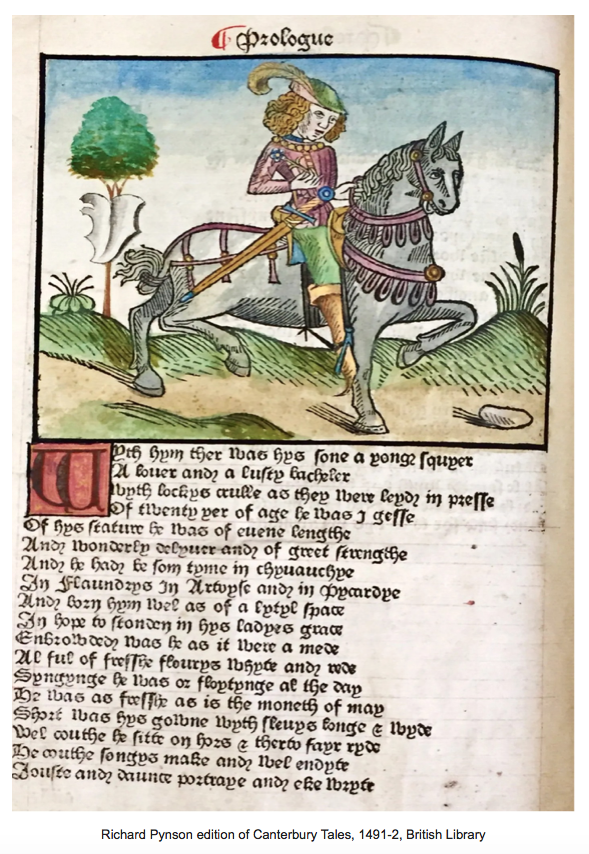 ¶ Prologue
Wyth hym ther was hys sone a yonge squyer
A louer and a lusty bacheler
Wyth lockys crulle as they were leyd in presse
Of twenty yer of age he was I gesse
Of hys stature he was of euene lengthe
And wonderly delyuer and of greet strengthe
And he had be som tyme in chyuauchye
In Flaundrys In Artoyse and in Pycardye
And born hym wel as of a lytyl space
In hope to stonden in hys ladyes grace
Enbrowded was he as it were a mede
Al ful of fresshe flourys whyte and rede
Syngynge he was or floytynge al the day
He was as fresshe as is the moneth of may
Short was hys gowne wyth sleuys longe & wyde
Wel couthe he sitte on hors & therto fayr ryde
He couthe songys make and wel endyte
Iouste and daunce portraye and eke wryte
Richard Pynson edition of Canterbury Tales, 1491-2, British Library